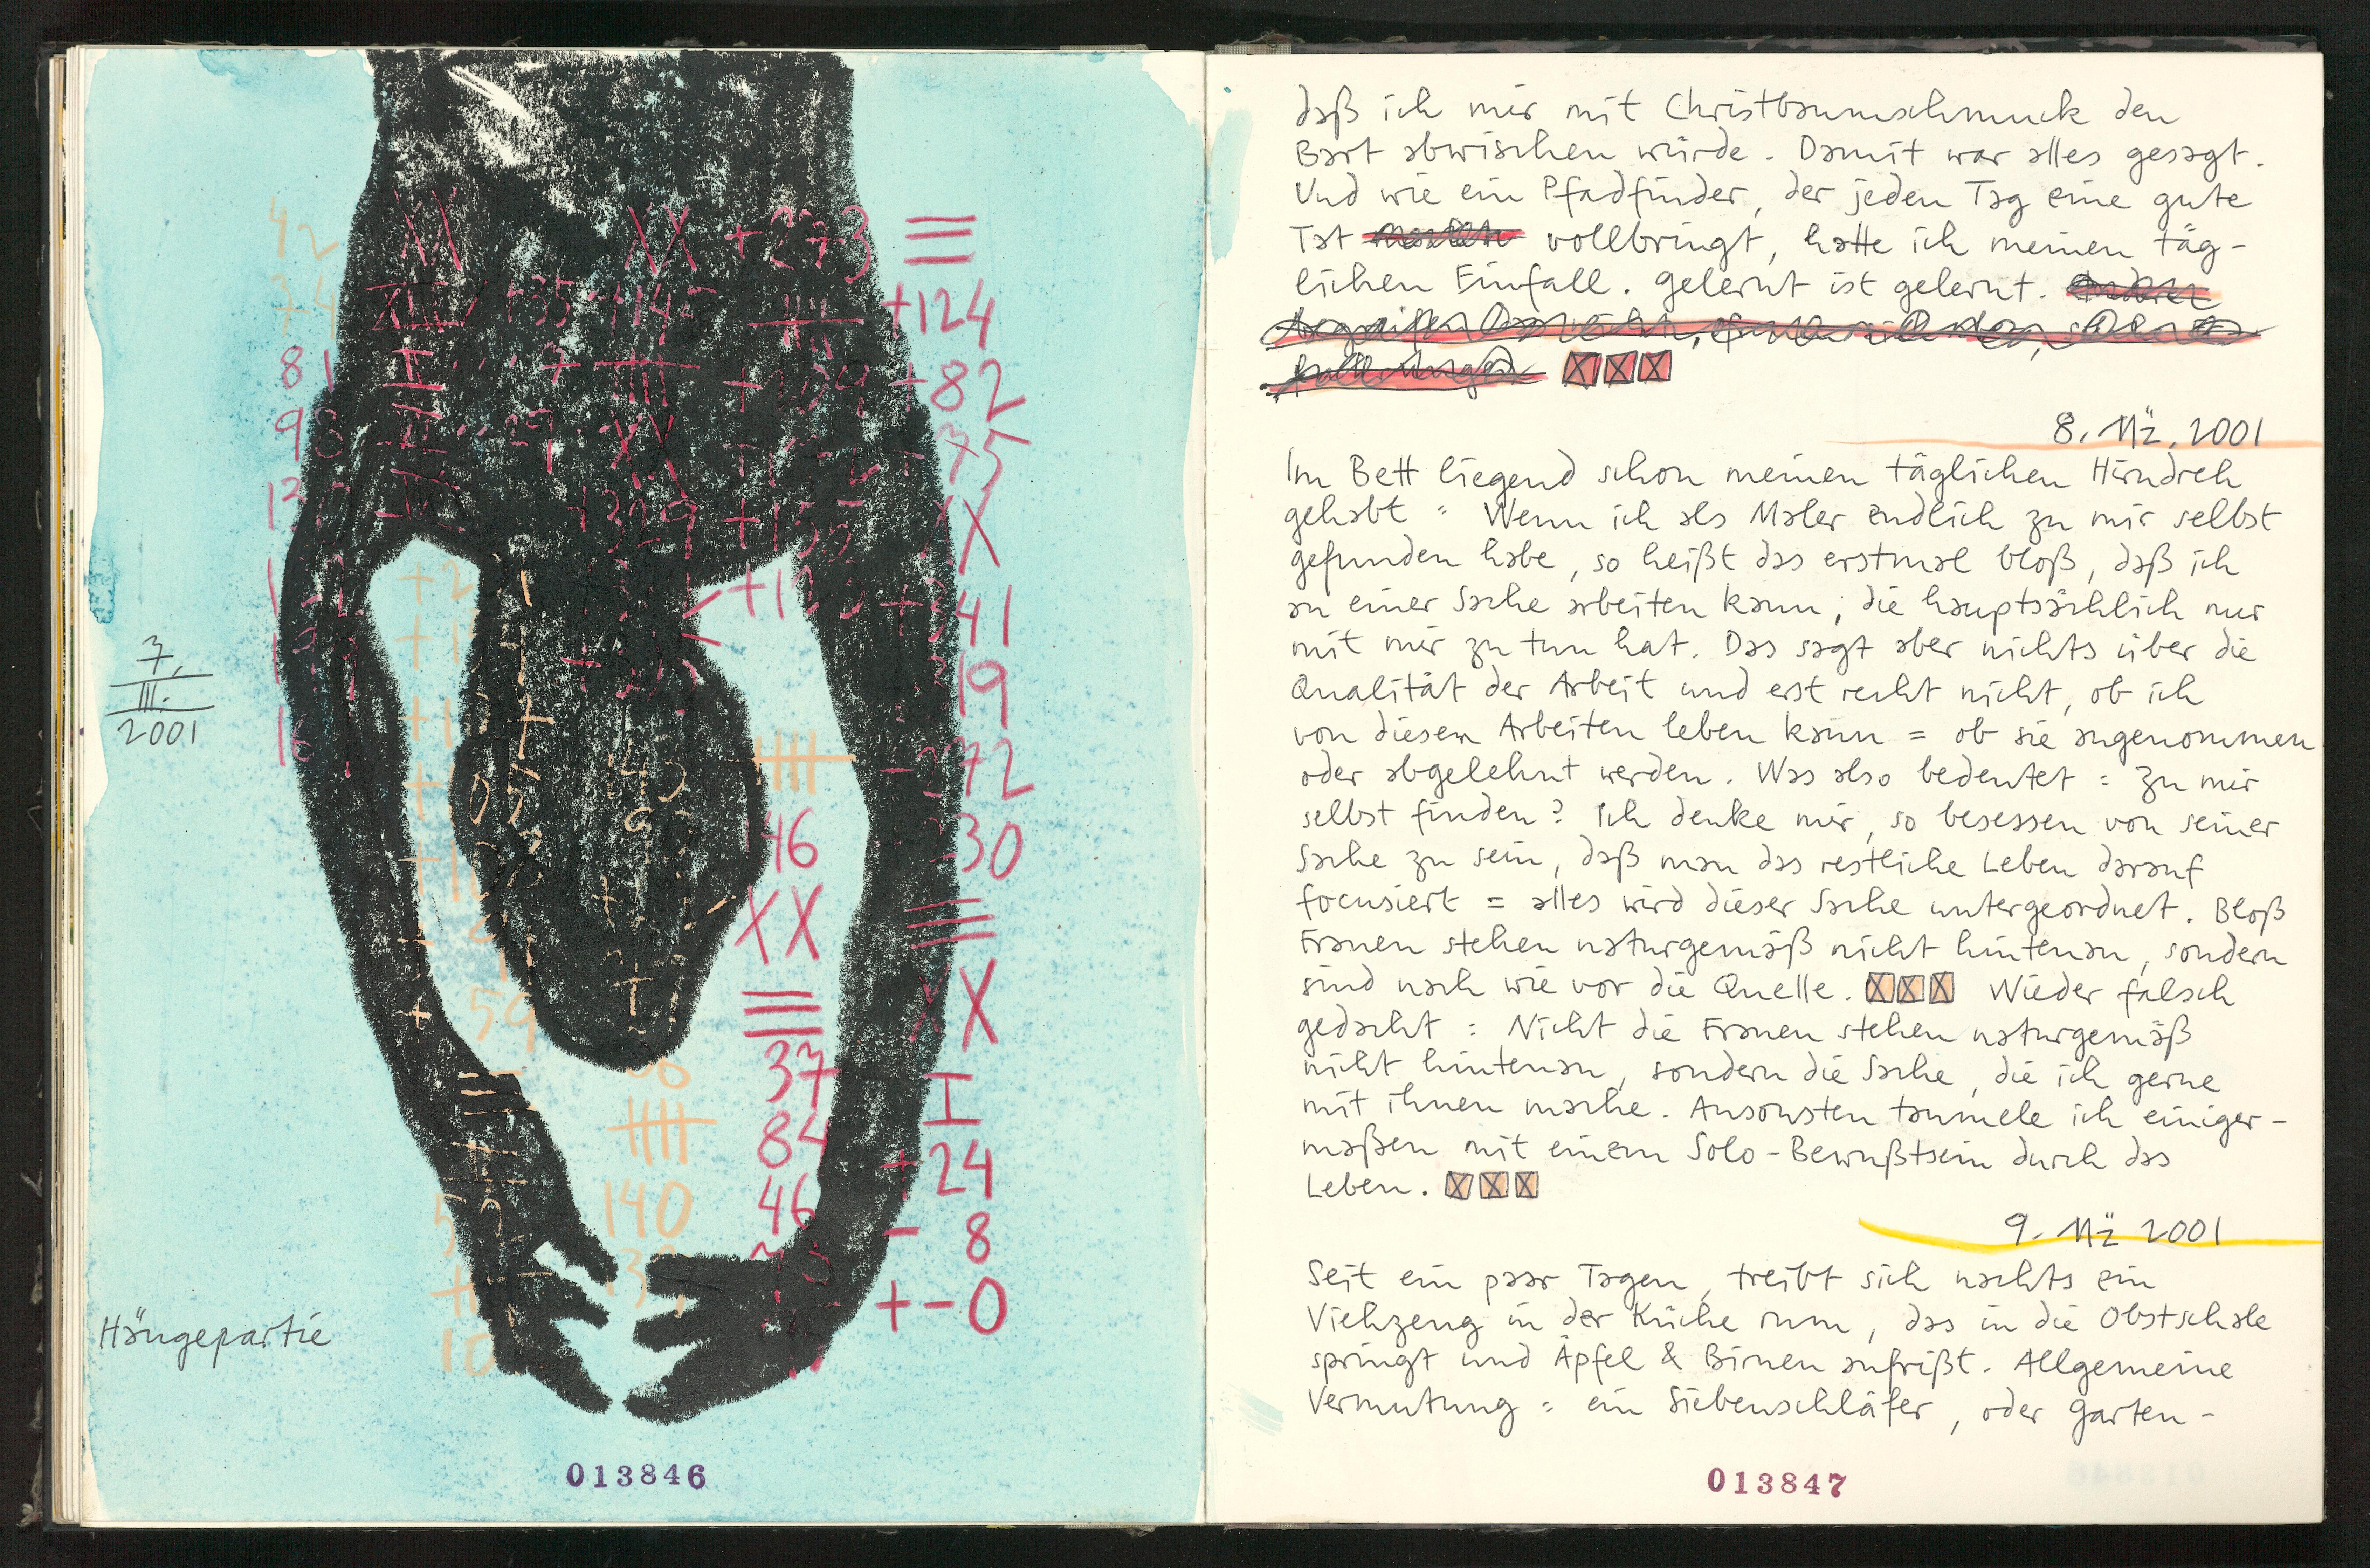 42
74
81
98
XX
+273
+124
+82
75
XX
+341
19
-272
230
XX
I
+24
- 8
+-0
46
XX
37
84
46
140
59
10
7.
III.
2001
Hängepartie
013846
daß ich mir mit Christbaumschmuck den
Bart abwischen würde. Damit war alles gesagt.
Und wie ein Pfadfinder, der jeden Tag eine gute
Tat vollbringt, hatte ich meinen täg-
lichen Einfall. Gelernt ist gelernt.
8. Mä. 2001
Im Bett liegend schon meinen täglichen Hirndreh
gehabt = Wenn ich als Maler endlich zu mir selbst
gefunden habe, so heißt das erstmal bloß, daß ich
an einer Sache arbeiten kann, die hauptsächlich nur
mit mir zu tun hat. Das sagt aber nichts über die
Qualität der Arbeit und erst recht nicht, ob ich
von diesen Arbeiten leben kann = ob sie angenommen
oder abgelehnt werden. Was also bedeutet = zu mir
selbst finden? Ich denke mir, so besessen von seiner
Sache zu sein, daß man das restliche Leben darauf
focusiert = alles wird dieser Sache untergeordnet. Bloß
Frauen stehen naturgemäß nicht hintenan, sondern
sind nach wie vor die Quelle. XXX Wieder falsch
gedacht : Nicht die Frauen stehen naturgemäß
nicht hintenan, sondern die Sache, die ich gerne
mit ihnen mache. Ansonsten taumele ich einiger-
maßen mit einem Solo-Bewußtsein durch das
Leben. XXX
9. Mä 2001
Seit ein paar Tagen, treibt sich nachts ein
Viehzeug in der Küche rum, das in die Obstschale
springt und Äpfel & Birnen anfrißt. Allgemeine
Vermutung = ein Siebenschläfer, oder Garten-
013847